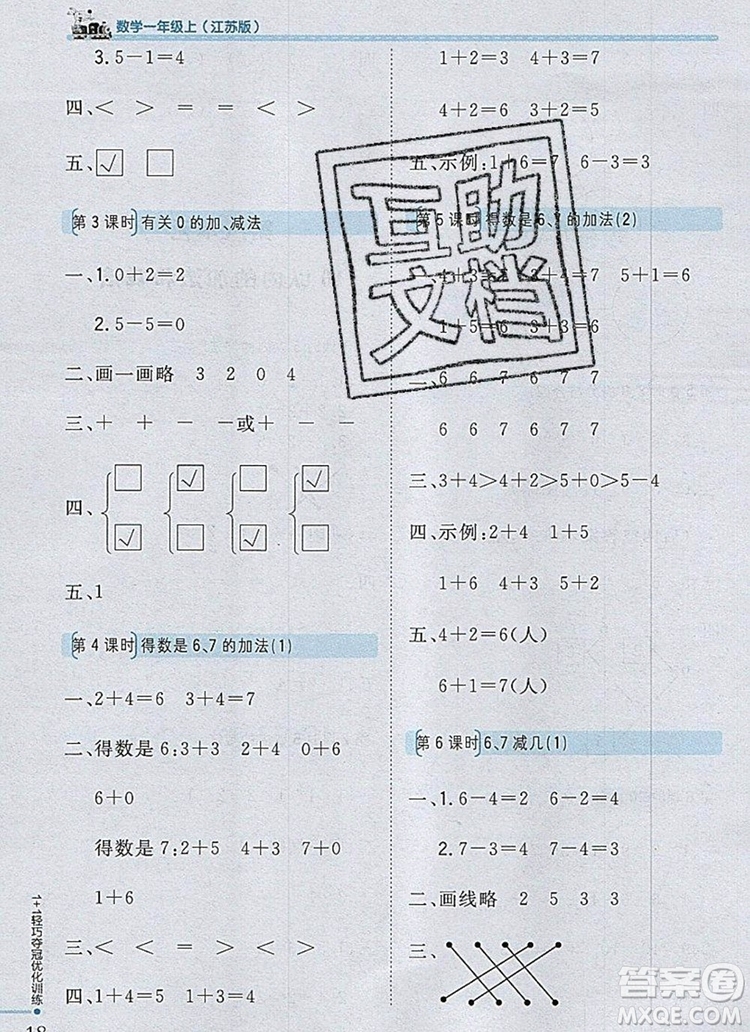 数学一年级上(江苏版)
3.5-1=4
四、< > = = < >
五、☑ □
第3课时 有关0的加、减法
一、1.0+2=2
2.5-5=0
二、画一画略 3 2 0 4
三、+ + - -或+ - -
四、{□ ☑ {☑ □ {□ ☑ {☑ □
五、1
第4课时 得数是6、7的加法(1)
一、2+4=6 3+4=7
二、得数是6:3+3 2+4 0+6
6+0
得数是7:2+5 4+3 7+0
1+6
三、< < = > < =
四、1+4=5 2+4=6
1+2=3 4+3=7
4+2=6 3+2=5
五、示例:1+6=7 6-3=3
第5课时 得数是6、7的加法(2)
4+3=7 5+1=6
1+5=6 3+3=6
6 7 6 6 7 7
6 6 7 6 7 7
三、3+4>4+2>5+0>5-4
四、示例:2+4 1+5
1+6 4+3 5+2
五、4+2=6(人)
6+1=7(人)
第6课时 6、7减几(1)
一、1.6-4=2 6-2=4
2.7-3=4 7-4=3
二、画线略 2 5 3 3
三、
1+1轻巧夺冠优化训练
18
互助
文档
答案圈
MXQE.COM